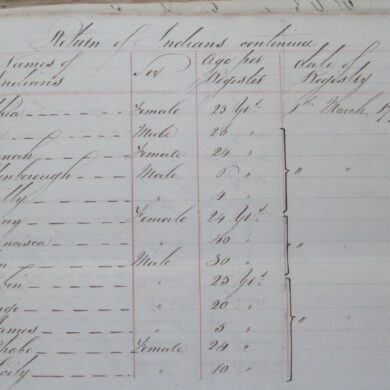 Return of Indians continued
Names of Indians Sex Age per Register date of Registry
Female 23 Yrs. 1st March,
Male 26 "
nah Female 24 "
nborough Male 6 "
lly " 4 "
ny Female 24 Yrs.
ncisca " 40 " "
n Male 30 "
" 25 Yrs.
" 20 "
ames " 5 " "
hobe Female 24 "
icity " 10 "